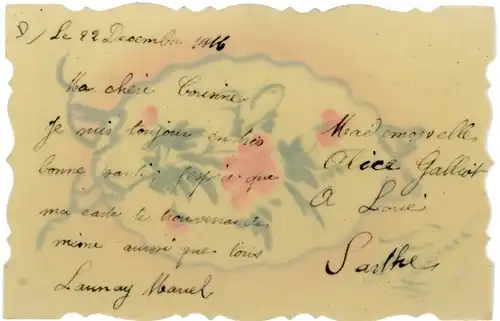 8) Le 22 Decembre 1916
Ma cheri Cousine
Je suis toujour en très
bonne santé j'espère que
ma carte te trouveras de
même ainsi que tous
Launay Marcel
Mademoiselle
Alice Galliot
A Loué
Sarthe